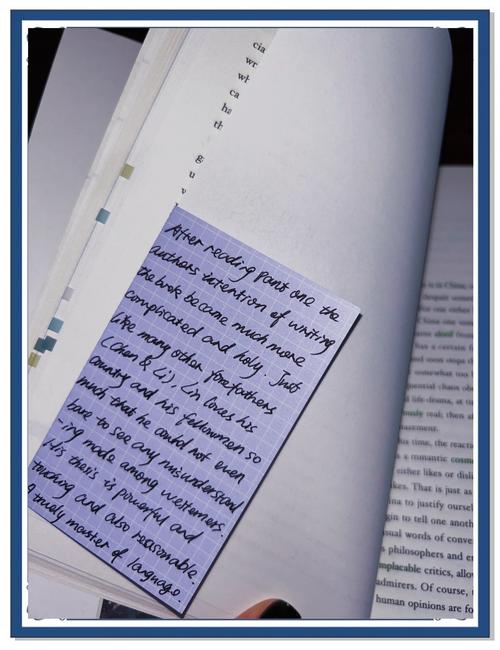 cia
wr
wh
ca
ha
th
g
u
v
After reading part one the
authors intention of writing
the book become much more
complicated and holy. Just
like many other forefathers
(Chen & Li), Lin loves his
country and his fellowmen so
much that he could not even
bare to see any misunderstand
-ing made among westerners.
His thesis is powerful and
touching and also reasonable.
A truely master of language.
is in China,
despair
China one
aloof
has a certain
and soon stops
somewhat too
chaos
life-drama, at
real; then
basement.
time, the reacti
a romantic cosm
either likes or disli
kes. That is just as
na to justify oursel
gin to tell one anoth
usual words of conve
philosophers and e
mplacable critics, allo
admirers. Of course,
human opinions are fo